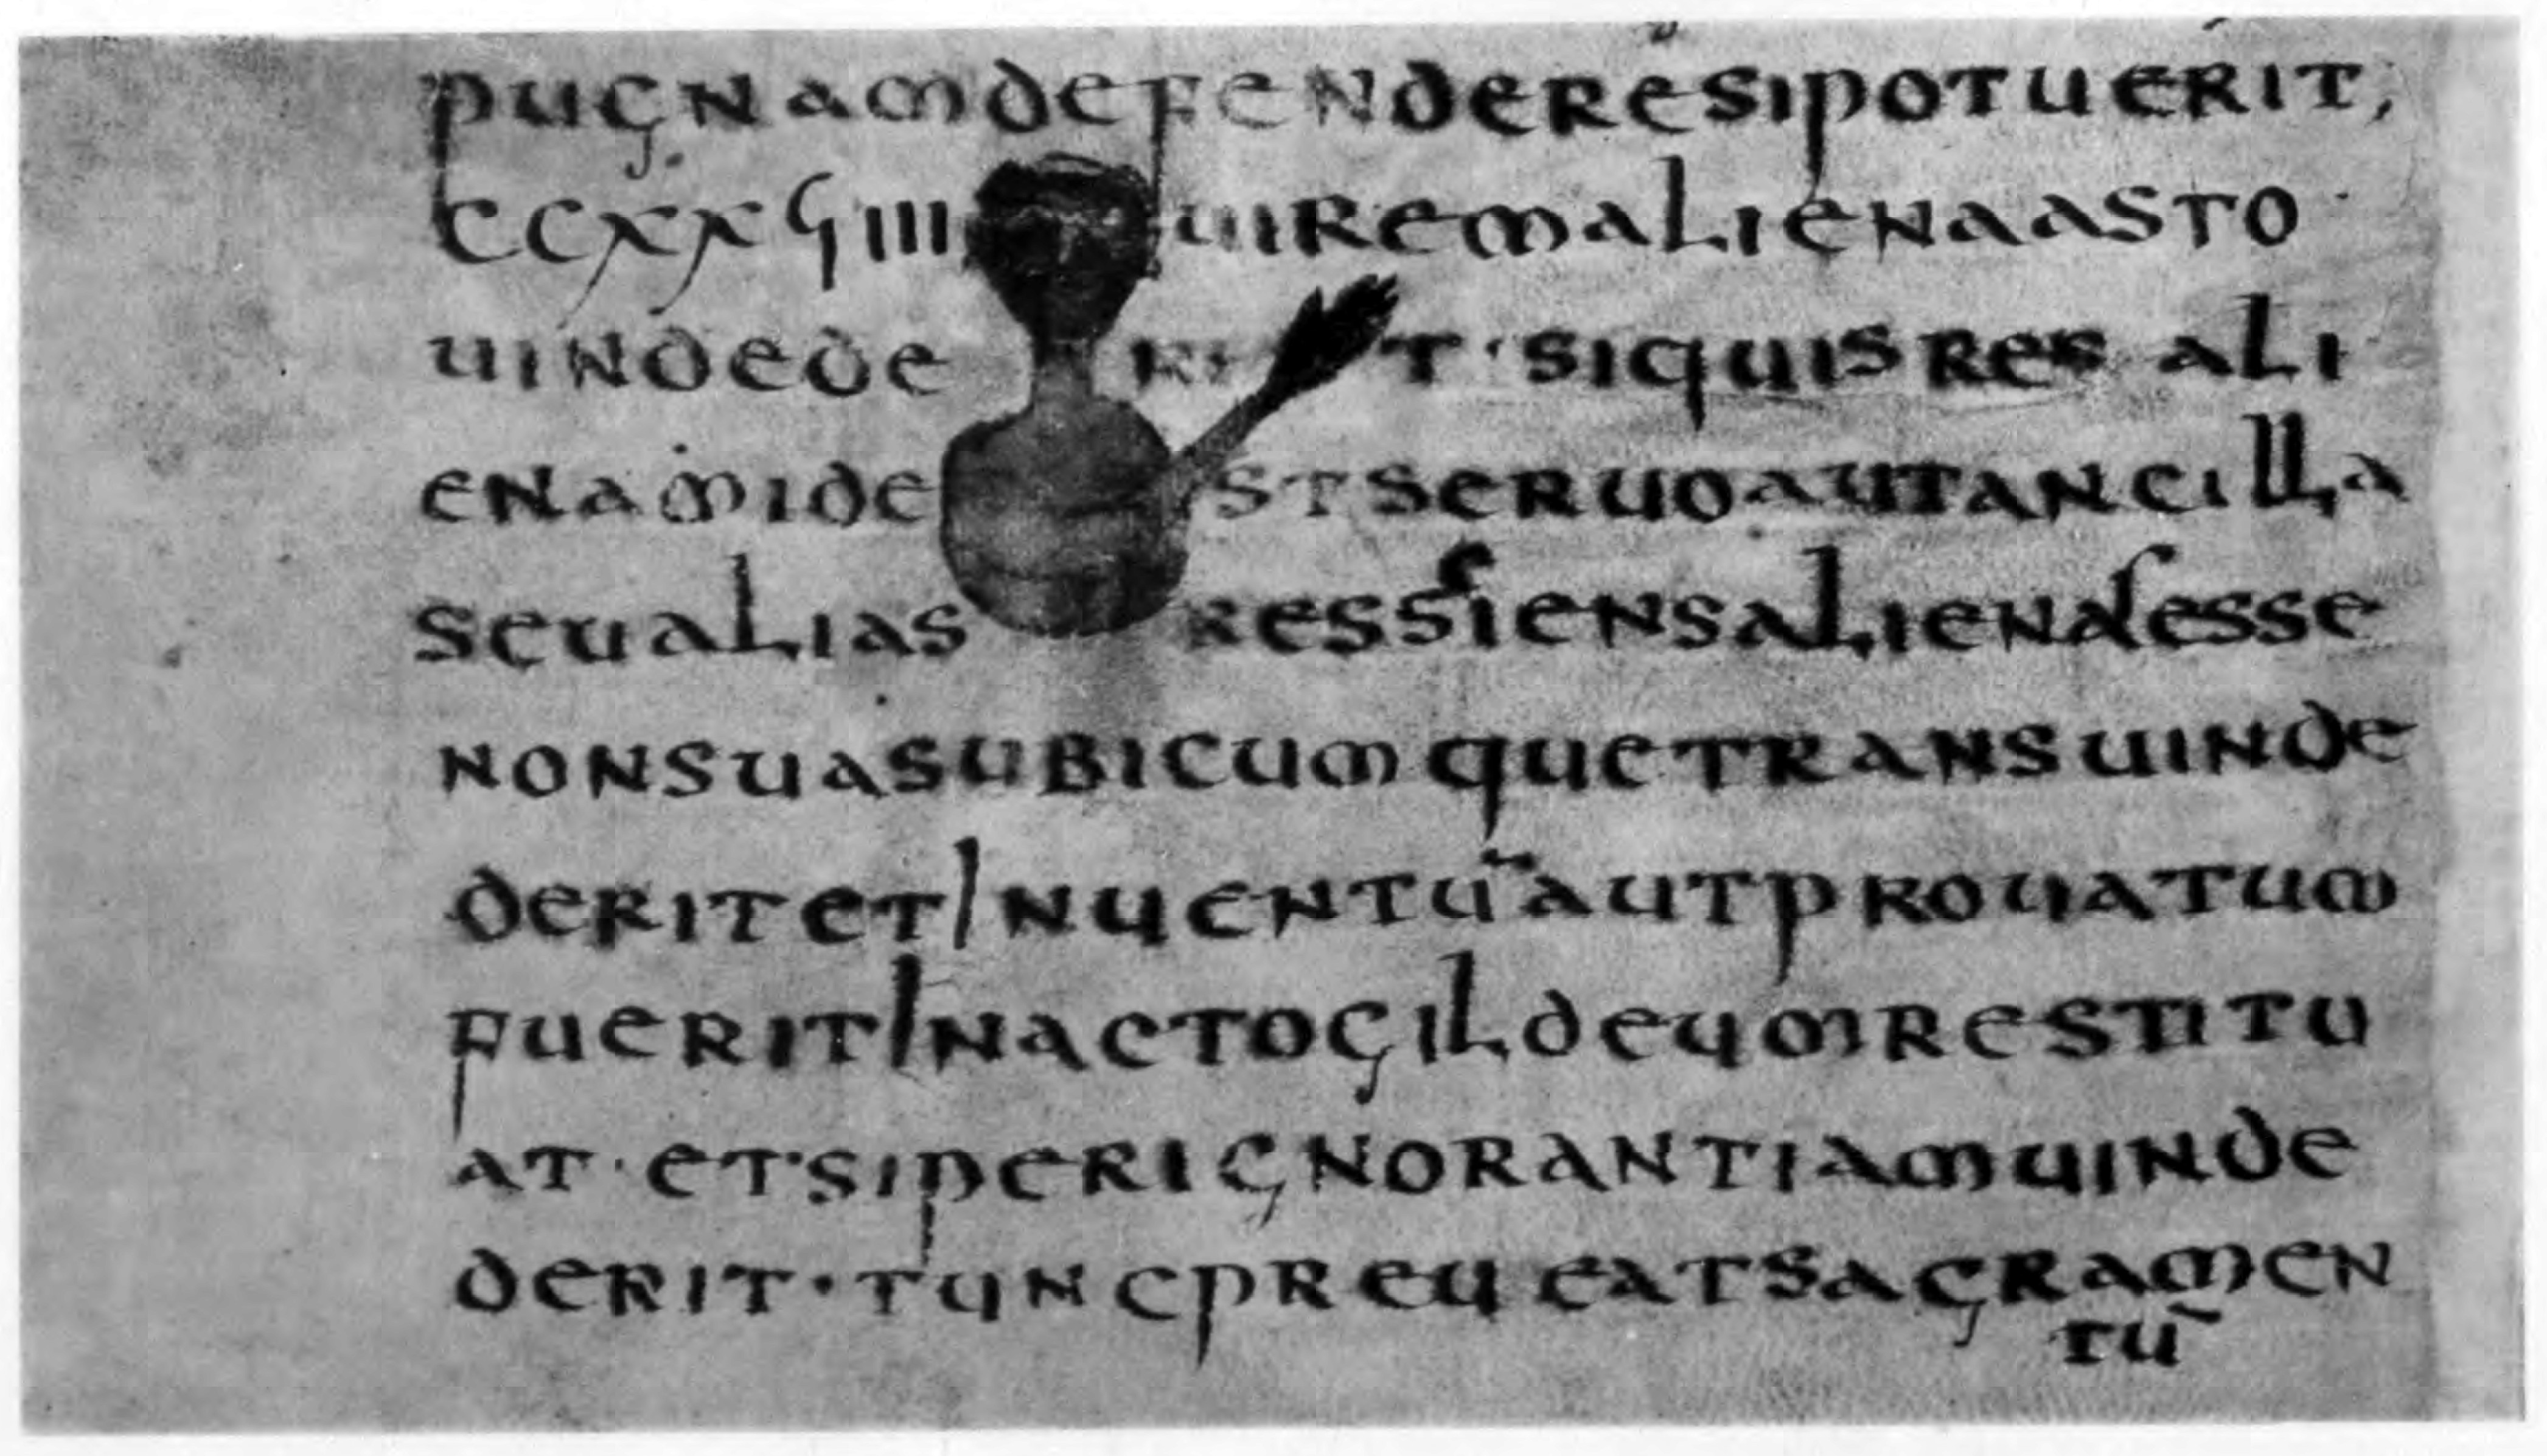 PUGNAMDEFENDERESIPOTUERIT,
CCXXVIIII UIREMALIENAASTO
UINDEDE RI T·SIQUISRES ALI
ENAMIDE STSERUOAUTANCILLA
SEUALIAS RESSCIENSALIENASESSE
NONSUASUBICUMQUETRANSUINDE
DERITETINUENTŪAUTPROUATUM
FUERITINACTOGILDEUMRESTITU
AT·ETSIPERIGNORANTIAMUINDE
DERIT·TUNCPREUEATSAGRAMEN
TŪ